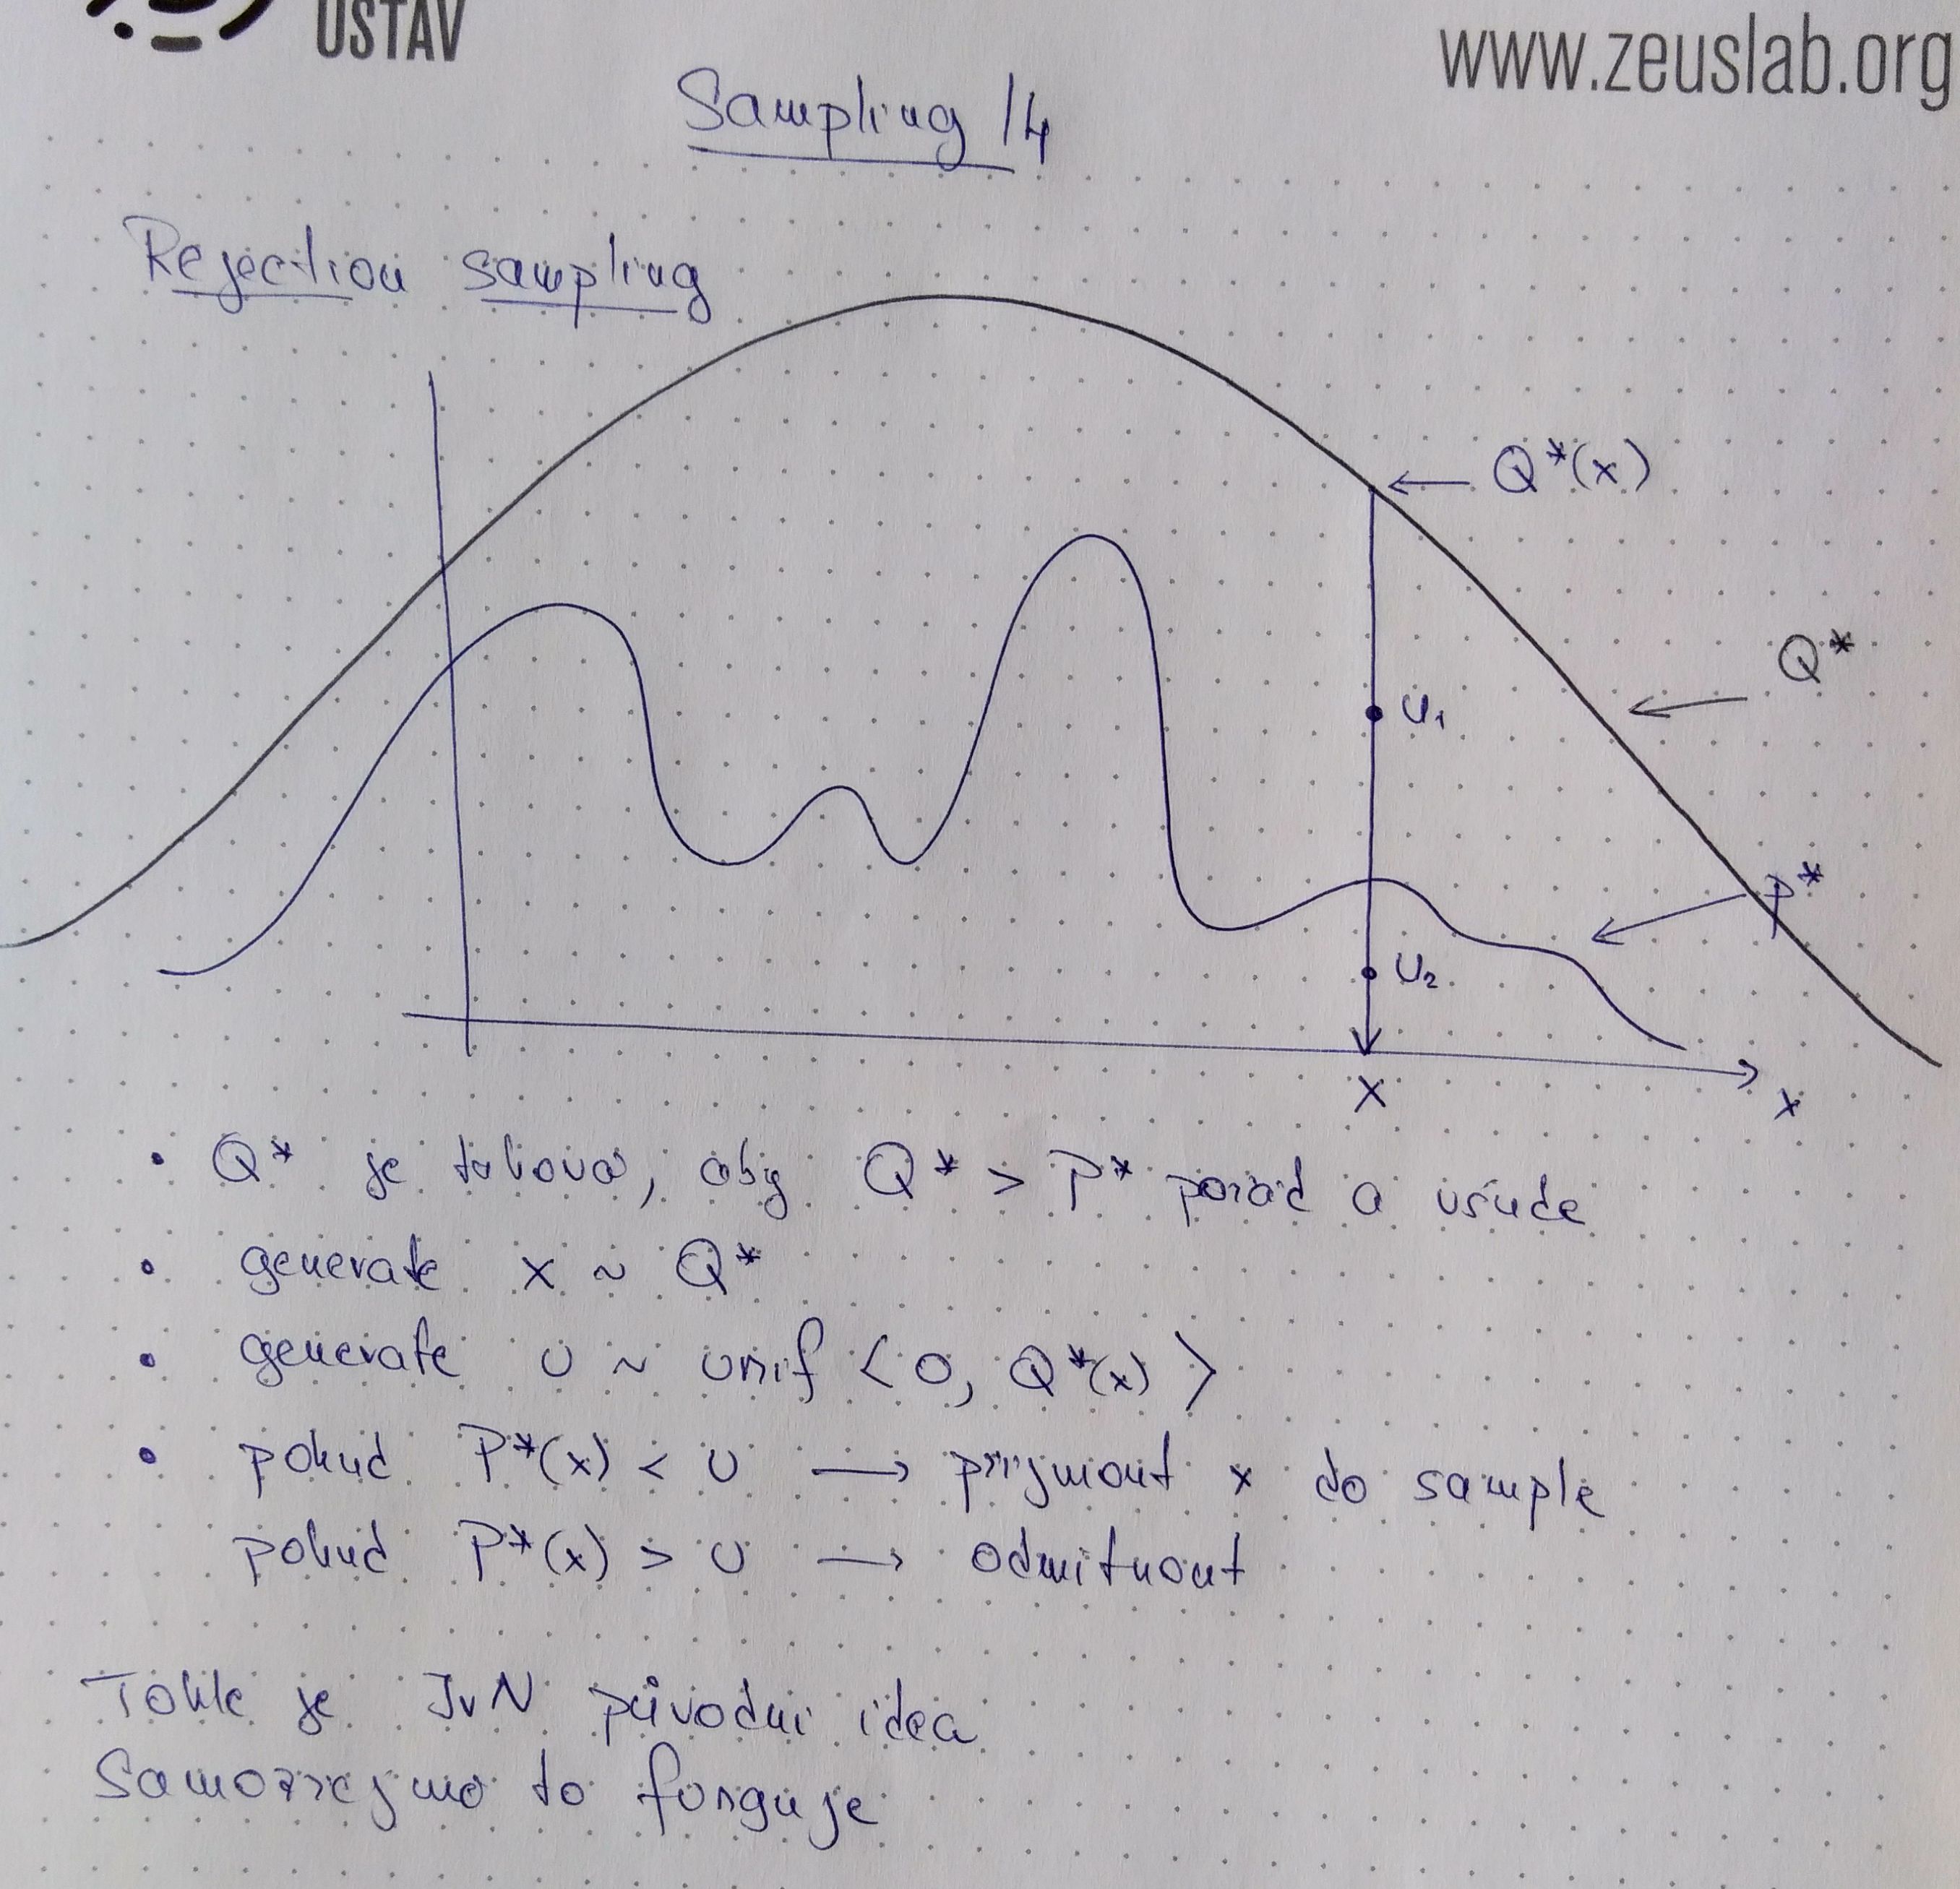 ÚSTAV
www.zeuslab.org
Sampling /4
Rejection sampling
Q*(x)
Q*
u₁
P*
u₂
x
x
• Q* je taková, aby Q* > P* pořád a všude
• generate x ~ Q*
• generate u ~ unif <0, Q*(x)>
• pokud P*(x) < u → prijmout x do sample
pokud P*(x) > u → odmitnout
Tohle je JvN původni idea
Samozrejmo to funguje